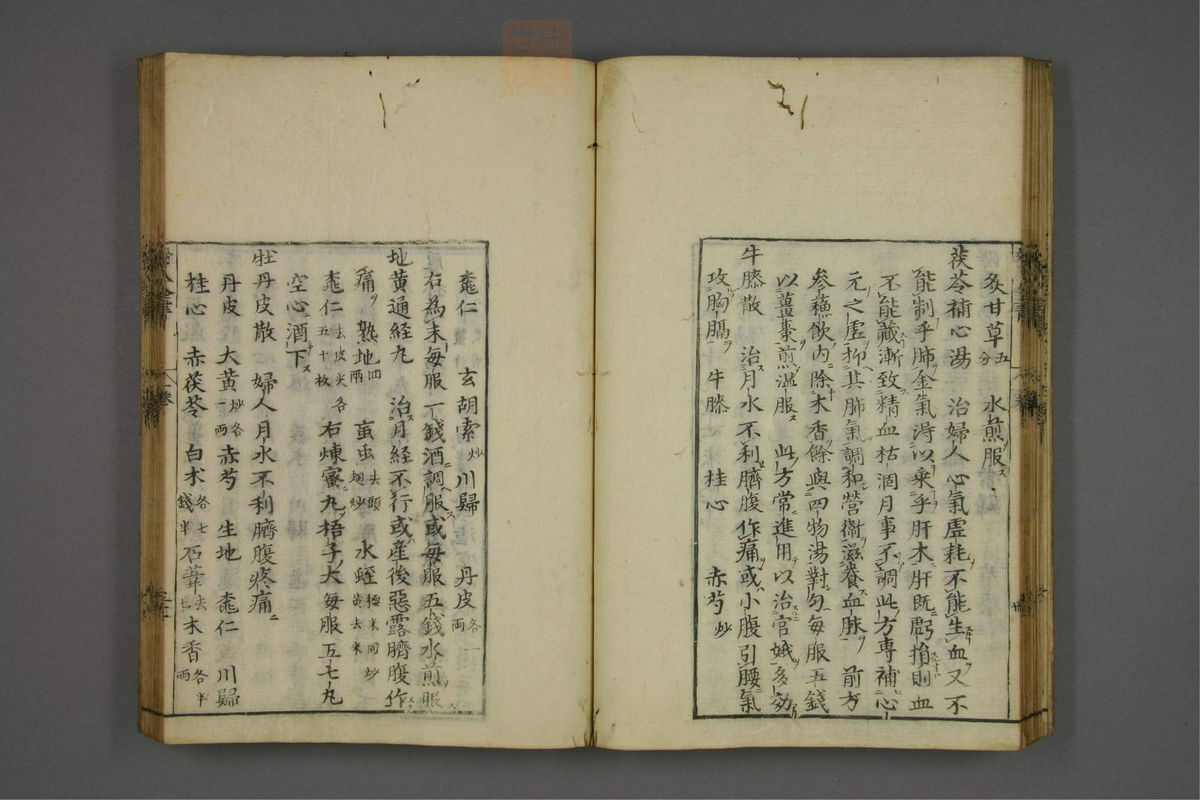 炙甘草五分 水煎服
茯苓補心湯 治婦人心氣虚耗不能生血又不
能制乎肺金氣得以乗乎肝木肝既虧損則血
不能藏漸致精血枯涸月事不調此方専補心
元之虚抑其肺氣調和營衛滋養血脉 前方
参蘓飲内除木香餘與四物湯對匀毎服五錢
以薑棗煎温服 此方常進用以治官娥多効
牛膝散 治月水不利臍腹作痛或小腹引腰氣
攻胸膈 牛膝 桂心 赤芍炒
桃仁 玄胡索炒 川歸 丹皮各一両
右為末毎服一錢酒調服或毎服五錢水煎服
地黄通経丸 治月経不行或産後惡露臍腹作
痛 熟地四両 䖟虫去頭翅炒 水蛭糯米同炒黄去米
桃仁去皮尖各五十枚 右煉蜜丸梧子大毎服五七丸
空心酒下
牡丹皮散 婦人月水不利臍腹疼痛
丹皮 大黄炒各一両 赤芍 生地 桃仁 川歸
桂心 赤茯苓 白术各七錢半 石葦去毛 木香各半両